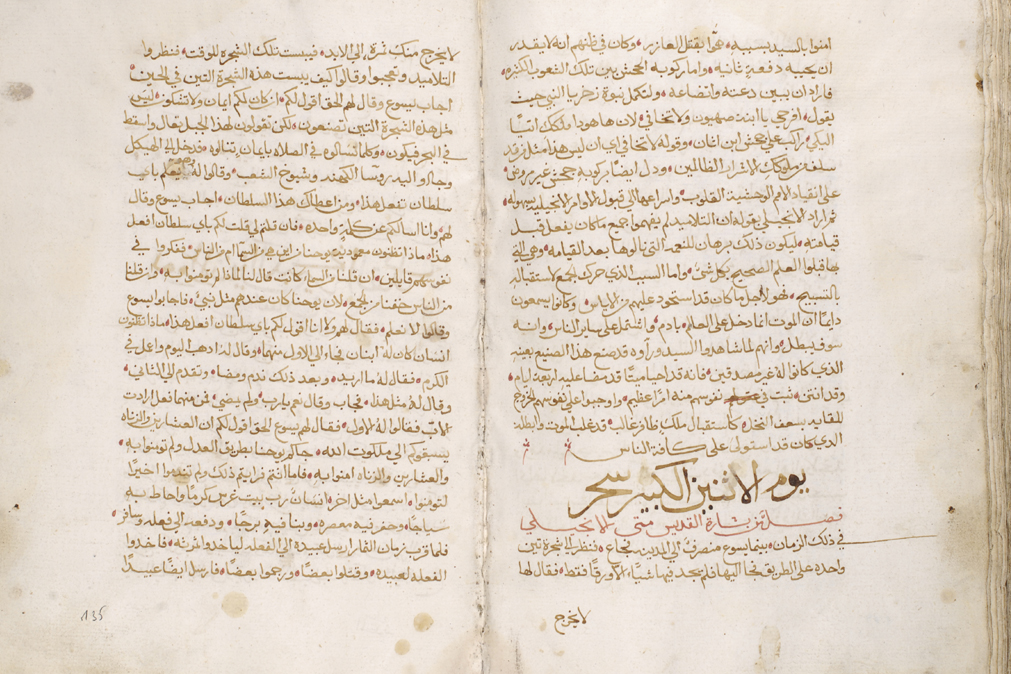 امنوا بالسيد بسببه هموا بقتل العازر وكان في ظنهم انه لا يقدر
ان يحييه دفعة تانيه واما ركوبه الجحش بين تلك الشعوب الكثيره
فاراد ان يبين دعته واتضاعه ولتكمل نبوة زخريا النبي حيث
يقول افرحي يا ابنة صهيون ولا تخافي لان هاهودا ملكك اتيًا
اليكي راكب علي جحش ابن اتان وقوله لا تخافي اي ان ليس هذا مثل من قد
سلف من ملوكك الاشرار الظالمين ودل ايضًا بركوبه جحش غير مروض
علي انقياد الامم الوحشية القلوب واسراعها الي قبول الاوامر الانجيليه بسهوله
ثم اراد الانجيلي بقوله ان التلاميد لم يفهموا جميع ما كان يفعل قبل
قيامته ليكون ذلك برهان للنعمه التي نالوها بعد القيامه وهي التي
بها قبلوا العلم الصحيح بكل شيء واما السبب الذي حرك الجمع لاستقباله
بالتسبيح فهو لاجل ما كان قد استحود عليهم من الاياس وكانوا يسمعون
دايمًا ان الموت انما دخل علي العالم بادم واشتمل علي ساير الناس وانه
سوف يبطل وانهم لما شاهدوا السيد وراوه قد صنع هذا الصنيع بعينه
الذي كانوا له غير مصدقين فانه قد احيا ميتًا قد مضا عليه اربعة ايام
وقد انتن ثبت في نفوسهم هذه امرًا عظيم واوجبوا علي نفوسهم الخروج
للقايه بسعف النخل كاستقبال ملك ظافر غالب قد غلب الموت وابطله
الدي كان قد استولي علي كافة الناس
يوم الاثنين الكبير سحر
فصل من بشارة القديس متي الانجيلي
في ذلك الزمان بينما يسوع منصرف الي المدينه فجاع فنظر الي شجرة تين
واحده علي الطريق فجا اليها فلم يجد فيها شيًا الا ورقًا فقط فقال لها
لا يخرج
لا يخرج منك ثمرة الي الابد فيبست تلك الشجرة للوقت فنظروا
التلاميد وتعجبوا وقالوا كيف يبست هذه الشجرة التين في الحين
اجاب يسوع وقال لهم الحق اقول لكم ان كان لكم ايمان ولا تشكون ليس
مثل هذه الشجرة التين تصنعون لكن تقولون لهذا الجبل تعال واسقط
في البحر فيكون وكلما تسالوه في الصلاه بايمان تنالوه فدخل الي الهيكل
وجاء اليه روسا الكهنه وشيوخ الشعب وقالوا له وهو يعلم باي
سلطان تفعل هذا ومن اعطاك هذا السلطان اجاب يسوع وقال
لهم وانا اسالكم عن كلمة واحده فان قلتم لي قلت لكم باي سلطان افعل
هذا ماذا تظنون معمودية يوحنا من اين هي من السما ام من الناس ففكروا في
نفوسهم قايلين ان قلنا من السما كانت قال لنا لماذا لم تومنوا به وان قلنا
من الناس خفنا من الجمع لان يوحنا كان عندهم مثل نبي فاجابوا يسوع
وقالوا لا نعلم فقال لهم ولا انا اقول لكم باي سلطان افعل هذا ماذا تظنون
انسان كان له ابنان فجاء الي الاول منهما وقال له اذهب اليوم واعمل في
الكرم فقال له ما اريد وبعد ذلك ندم ومضا وتقدم الي الثاني
وقال له مثل هذا فجاب وقال نعم يا رب ولم يمضي فمن منهما فعل ارادت
الاب فقالوا له الاول فقال لهم يسوع الحق اقول لكم ان العشارين والزناه
يسبقوكم الي ملكوت الله جاكم يوحنا بطريق العدل ولم تومنوا به
والعشارين والزناه امنوا به فاما انتم فرايتم ذلك ولم تندموا اخيرًا
لتومنوا به اسمعوا مثل اخر انسان رب بيت غرس كرمًا واحاط به
سياجًا وحفر فيه معصره وبنا فيه برجًا ودفعه الي فعله وسافر
فلما قرب زمان الثمار ارسل عبيده الي الفعله لياخدوا ثمرته فاخدوا
الفعله لعبيده وقتلوا بعضًا ورجموا بعضًا فارسل ايضًا عبيدًا
135